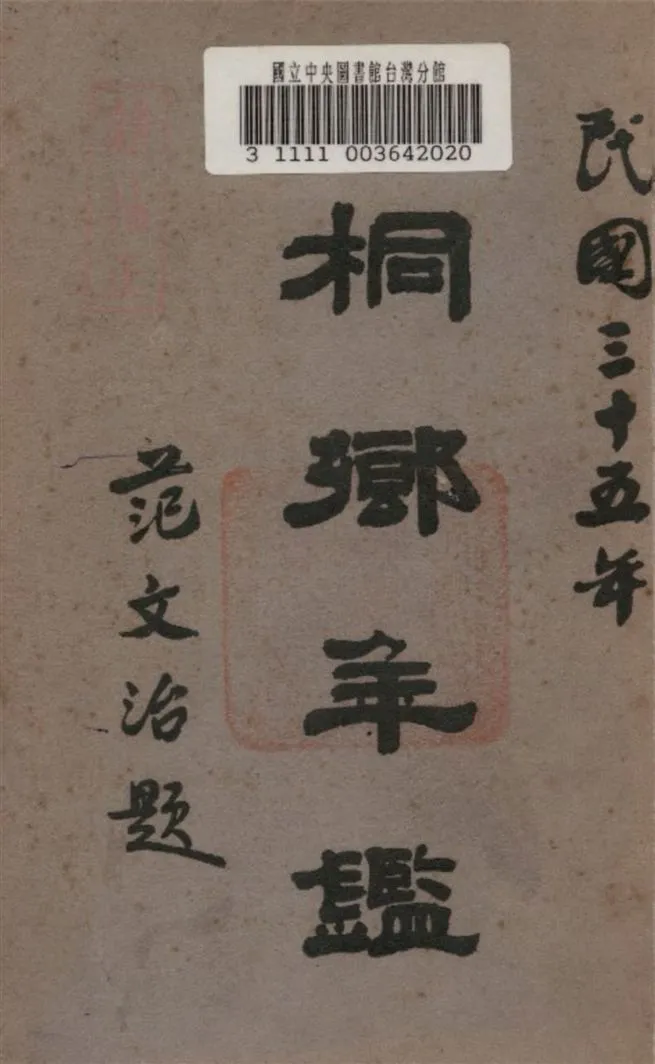 國立中央圖書館台灣分館
3 1111 003642020
民國三十五年
桐鄉年鑑
范文治題